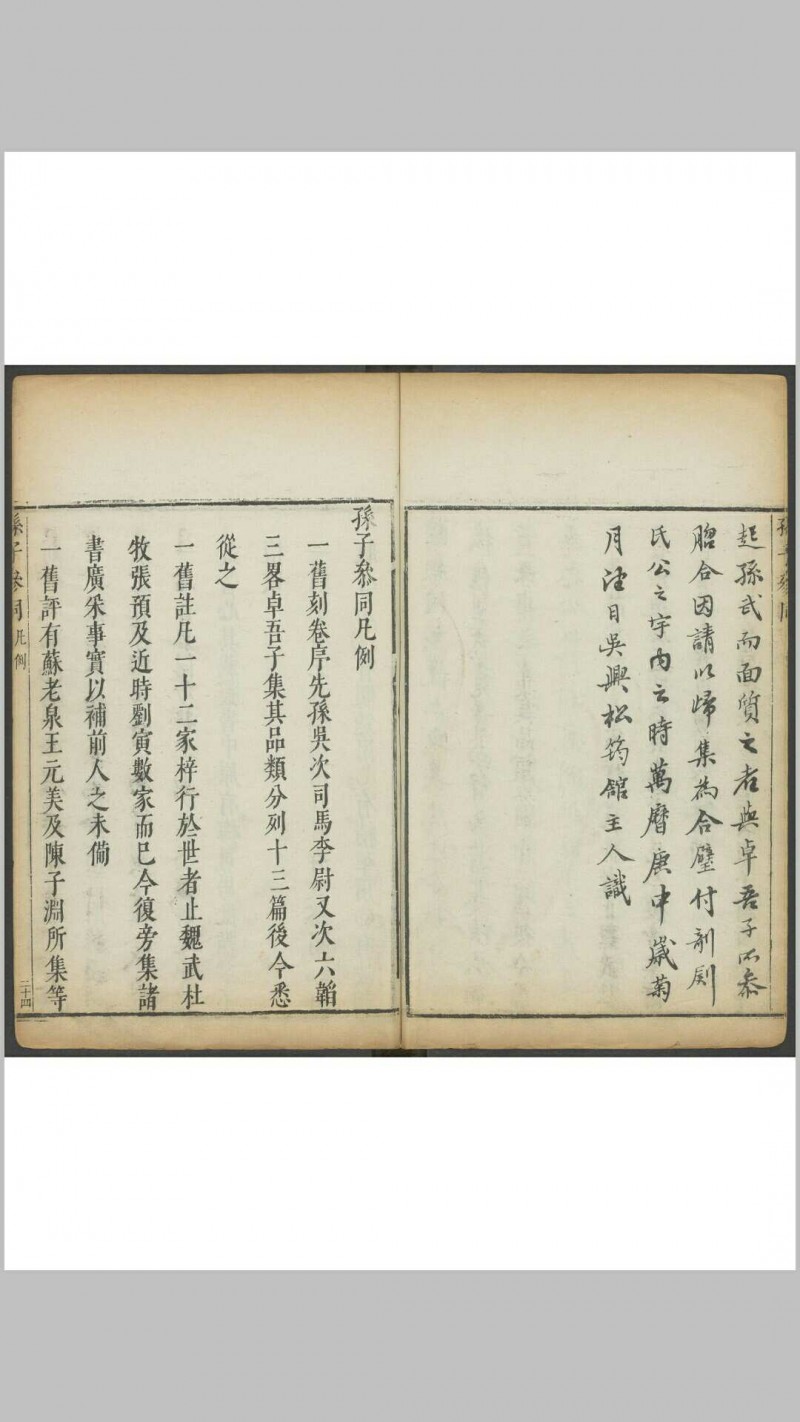 起孫武而面質之者與卓吾子不叅
脗合因請以歸集為合璧付剞劂
氏公之宇内云時萬曆庚申歲菊
月望日吳興松筠館主人識
孫子叅同凡例
一舊刻卷序先孫吳次司馬李尉又次六韜
三畧卓吾子集其品類分列十三篇後今悉
從之
一舊註凡一十二家梓行於世者止魏武杜
牧張預及近時劉寅數家而已今復旁集諸
書廣采事實以補前人之未備
一舊評有蘇老泉王元美及陳子淵所集等
孫子叅同 凡例 二十四